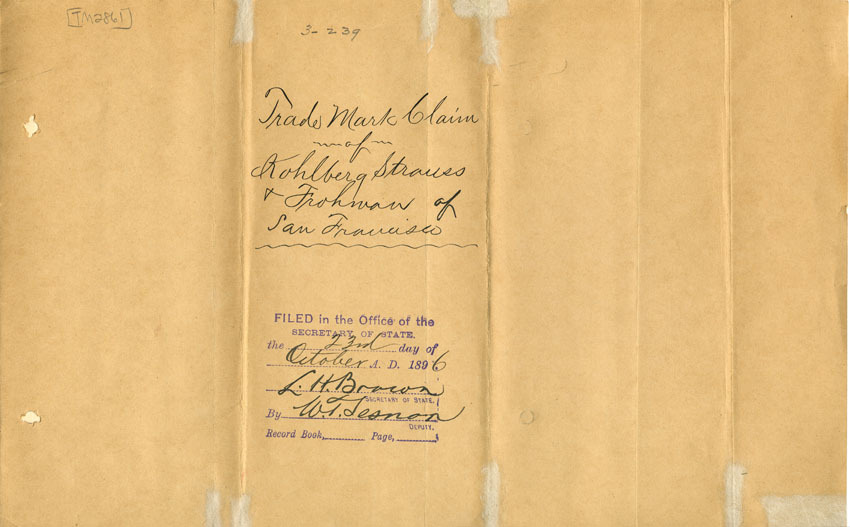 [TM2861]
3-239
Trade Mark Claim
of
Kohlberg Strauss
& Frohman of
San Francisco
FILED in the Office of the
SECRETARY OF STATE.
the 23rd day of
October A. D. 1896
L. H. Brown
SECRETARY OF STATE.
By W. T. Sesnon
DEPUTY.
Record Book, Page,